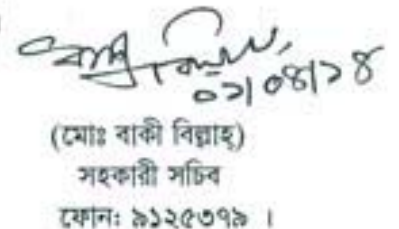 ০১|০৪|১৪
(মোঃ বাকী বিল্লাহ্)
সহকারী সচিব
ফোন: ৯১২৫৩৭৯ ।